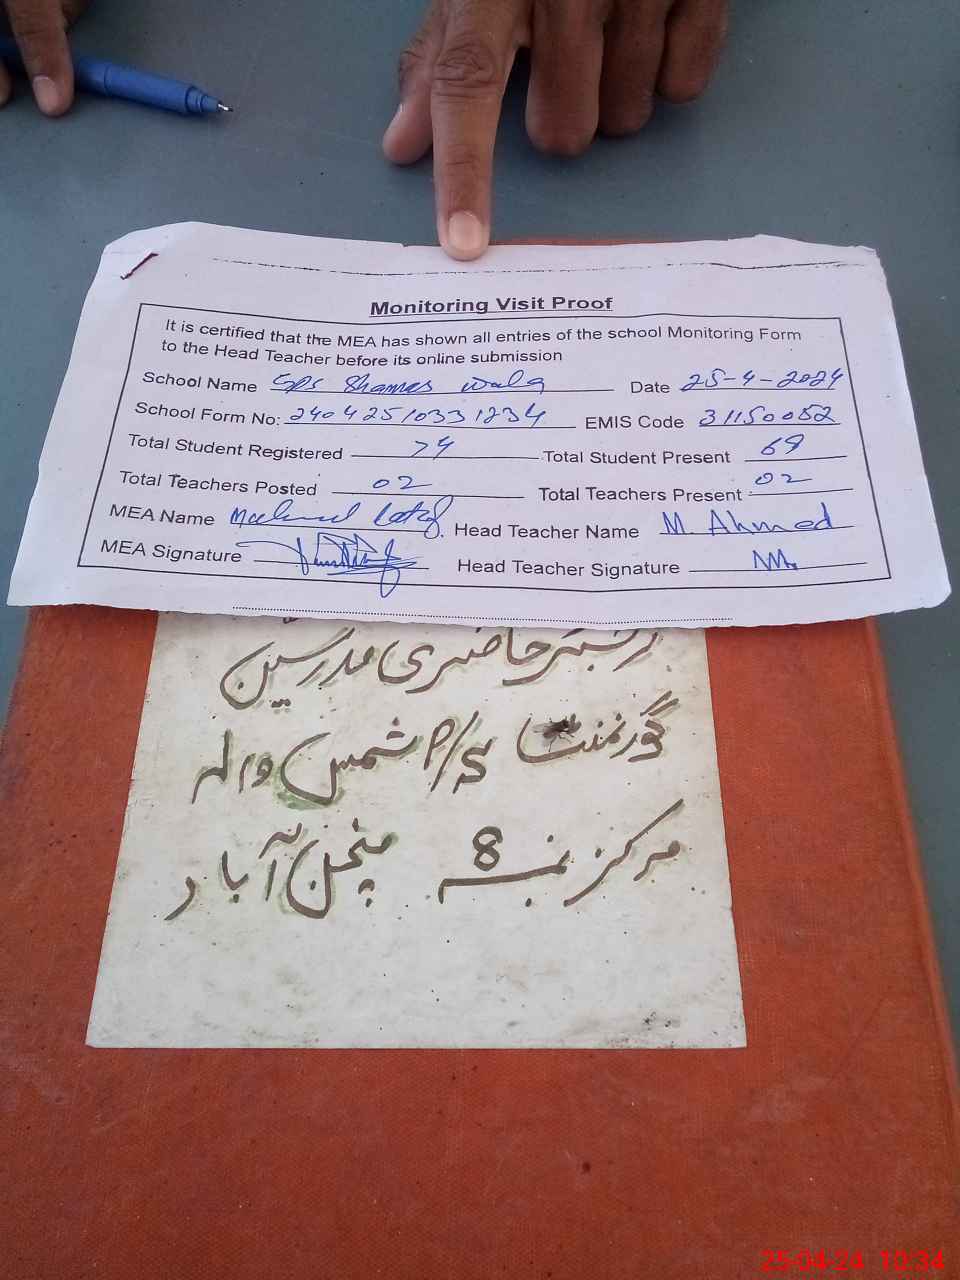 Monitoring Visit Proof
It is certified that the MEA has shown all entries of the school Monitoring Form
to the Head Teacher before its online submission
School Name GPS Shamas wala Date 25-4-2024
School Form No: 24042510331234 EMIS Code 31150052
Total Student Registered 74 Total Student Present 69
Total Teachers Posted 02 Total Teachers Present 02
MEA Name Head Teacher Name M. Ahmed
MEA Signature Head Teacher Signature
رجسٹر حاضری مدرسین
گورنمنٹ شمس والہ
مرکز نمبر 8 منچن آباد
25-04-24 10:34